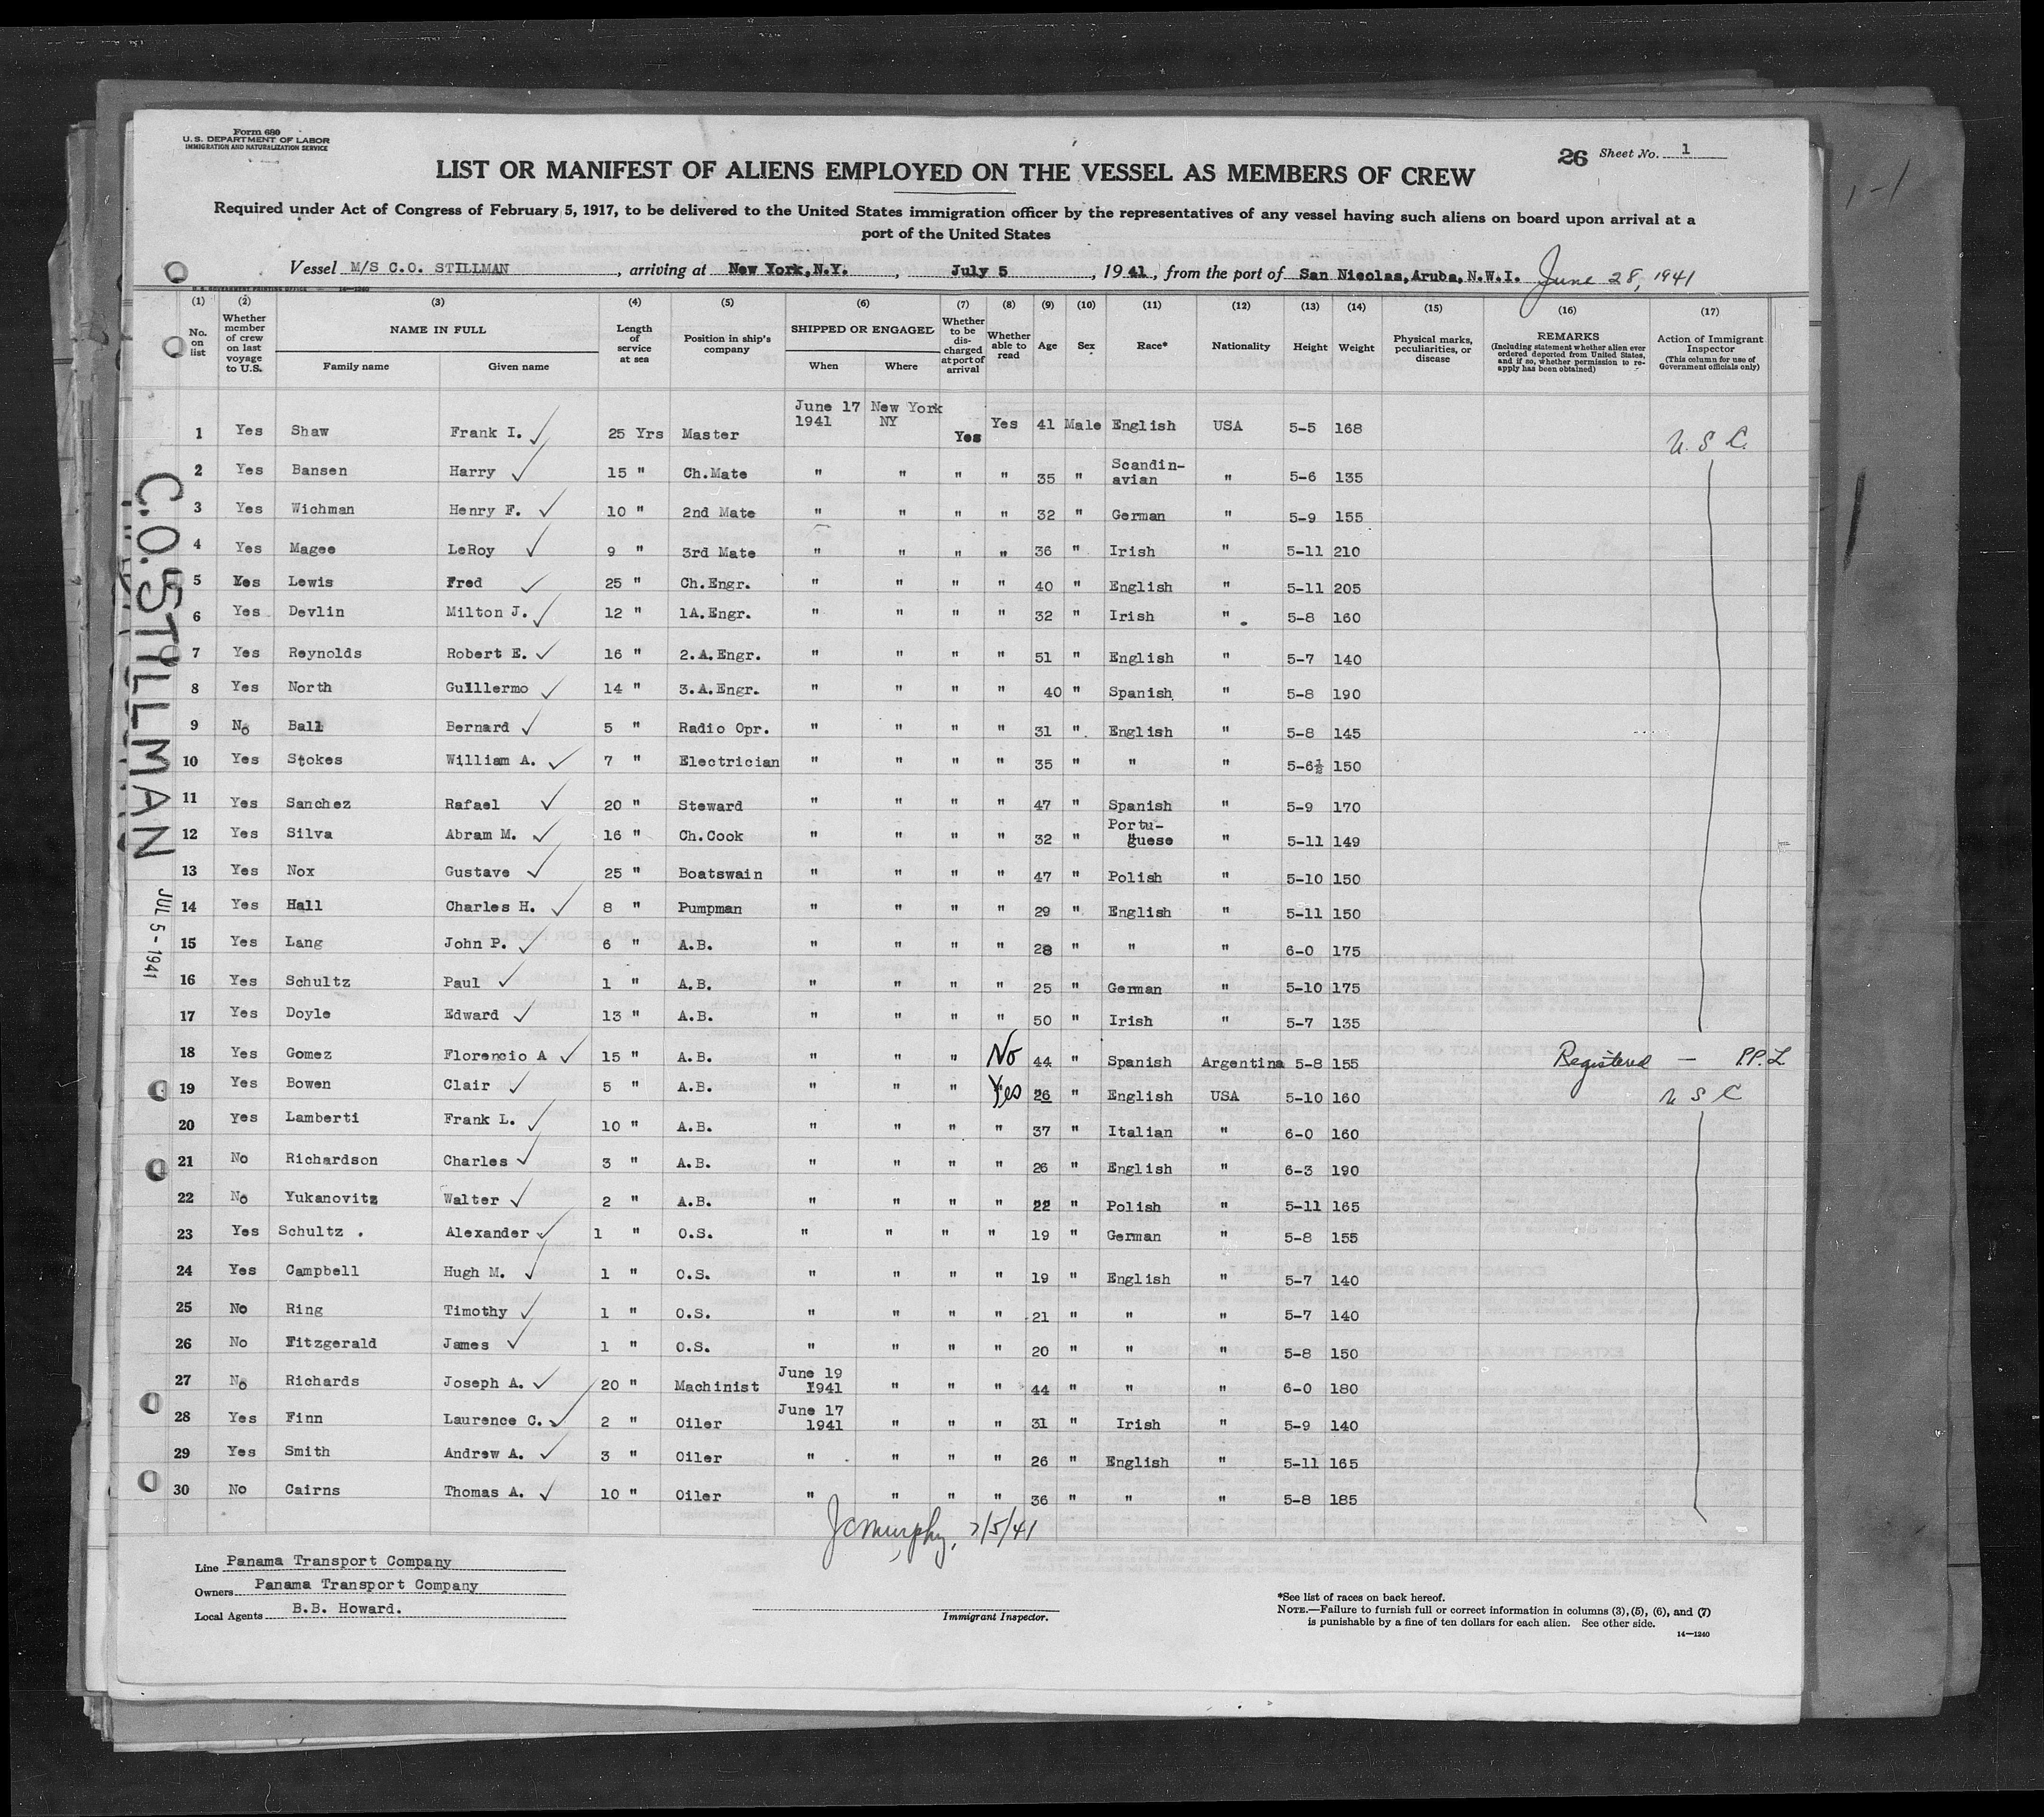 Form 680
U. S. DEPARTMENT OF LABOR
IMMIGRATION AND NATURALIZATION SERVICE
26 Sheet No. 1
LIST OR MANIFEST OF ALIENS EMPLOYED ON THE VESSEL AS MEMBERS OF CREW
Required under Act of Congress of February 5, 1917, to be delivered to the United States immigration officer by the representatives of any vessel having such aliens on board upon arrival at a
port of the United States
Vessel M/S C.O. STILLMAN, arriving at New York,N.Y., July 5, 1941, from the port of San Nicolas,Aruba,N.W.I. June 28, 1941
(1) (2) (3) (4) (5) (6) (7) (8) (9) (10) (11) (12) (13) (14) (15) (16) (17)
No. on list
Whether member of crew on last voyage to U.S.
NAME IN FULL
Family name Given name
Length of service at sea
Position in ship's company
SHIPPED OR ENGAGED
When Where
Whether to be discharged at port of arrival
Whether able to read
Age Sex Race* Nationality Height Weight
Physical marks, peculiarities, or disease
REMARKS
(Including statement whether alien ever ordered deported from United States, and if so, whether permission to reapply has been obtained)
Action of Immigrant Inspector
(This column for use of Government officials only)
1 Yes Shaw Frank I. ✓ 25 Yrs Master June 17 1941 New York NY Yes Yes 41 Male English USA 5-5 168 U.S.C.
2 Yes Bansen Harry ✓ 15 " Ch.Mate " " " " 35 " Scandin-avian " 5-6 135
3 Yes Wichman Henry F. ✓ 10 " 2nd Mate " " " " 32 " German " 5-9 155
4 Yes Magee LeRoy ✓ 9 " 3rd Mate " " " " 36 " Irish " 5-11 210
5 Yes Lewis Fred ✓ 25 " Ch.Engr. " " " " 40 " English " 5-11 205
6 Yes Devlin Milton J. ✓ 12 " 1A.Engr. " " " " 32 " Irish " 5-8 160
7 Yes Reynolds Robert E. ✓ 16 " 2.A.Engr. " " " " 51 " English " 5-7 140
8 Yes North Guillermo ✓ 14 " 3.A.Engr. " " " " 40 " Spanish " 5-8 190
9 No Ball Bernard ✓ 5 " Radio Opr. " " " " 31 " English " 5-8 145
10 Yes Stokes William A. ✓ 7 " Electrician " " " " 35 " " " 5-6½ 150
11 Yes Sanchez Rafael ✓ 20 " Steward " " " " 47 " Spanish " 5-9 170
12 Yes Silva Abram M. ✓ 16 " Ch.Cook " " " " 32 " Portu-guese " 5-11 149
13 Yes Nox Gustave ✓ 25 " Boatswain " " " " 47 " Polish " 5-10 150
14 Yes Hall Charles H. ✓ 8 " Pumpman " " " " 29 " English " 5-11 150
15 Yes Lang John P. ✓ 6 " A.B. " " " " 28 " " " 6-0 175
16 Yes Schultz Paul ✓ 1 " A.B. " " " " 25 " German " 5-10 175
17 Yes Doyle Edward ✓ 13 " A.B. " " " " 50 " Irish " 5-7 135
18 Yes Gomez Florencio A ✓ 15 " A.B. " " " No 44 " Spanish Argentina 5-8 155 Registered — P.P.L
19 Yes Bowen Clair ✓ 5 " A.B. " " " Yes 26 " English USA 5-10 160 U S C
20 Yes Lamberti Frank L. ✓ 10 " A.B. " " " " 37 " Italian " 6-0 160
21 No Richardson Charles ✓ 3 " A.B. " " " " 26 " English " 6-3 190
22 No Yukanovitz Walter ✓ 2 " A.B. " " " " 22 " Polish " 5-11 165
23 Yes Schultz . Alexander ✓ 1 " O.S. " " " " 19 " German " 5-8 155
24 Yes Campbell Hugh M. ✓ 1 " O.S. " " " " 19 " English " 5-7 140
25 No Ring Timothy ✓ 1 " O.S. " " " " 21 " " " 5-7 140
26 No Fitzgerald James ✓ 1 " O.S. " " " " 20 " " " 5-8 150
27 No Richards Joseph A. ✓ 20 " Machinist June 19 1941 " " " 44 " " " 6-0 180
28 Yes Finn Laurence C. ✓ 2 " Oiler June 17 1941 " " " 31 " Irish " 5-9 140
29 Yes Smith Andrew A. ✓ 3 " Oiler " " " " 26 " English " 5-11 165
30 No Cairns Thomas A. ✓ 10 " Oiler " " " " 36 " " " 5-8 185
C.O. STILLMAN
JUL 5-1941
JCMurphy, 7/5/41
Line Panama Transport Company
Owners Panama Transport Company
Local Agents B.B. Howard.
Immigrant Inspector.
*See list of races on back hereof.
NOTE.—Failure to furnish full or correct information in columns (3), (5), (6), and (7)
is punishable by a fine of ten dollars for each alien. See other side.
14—1240